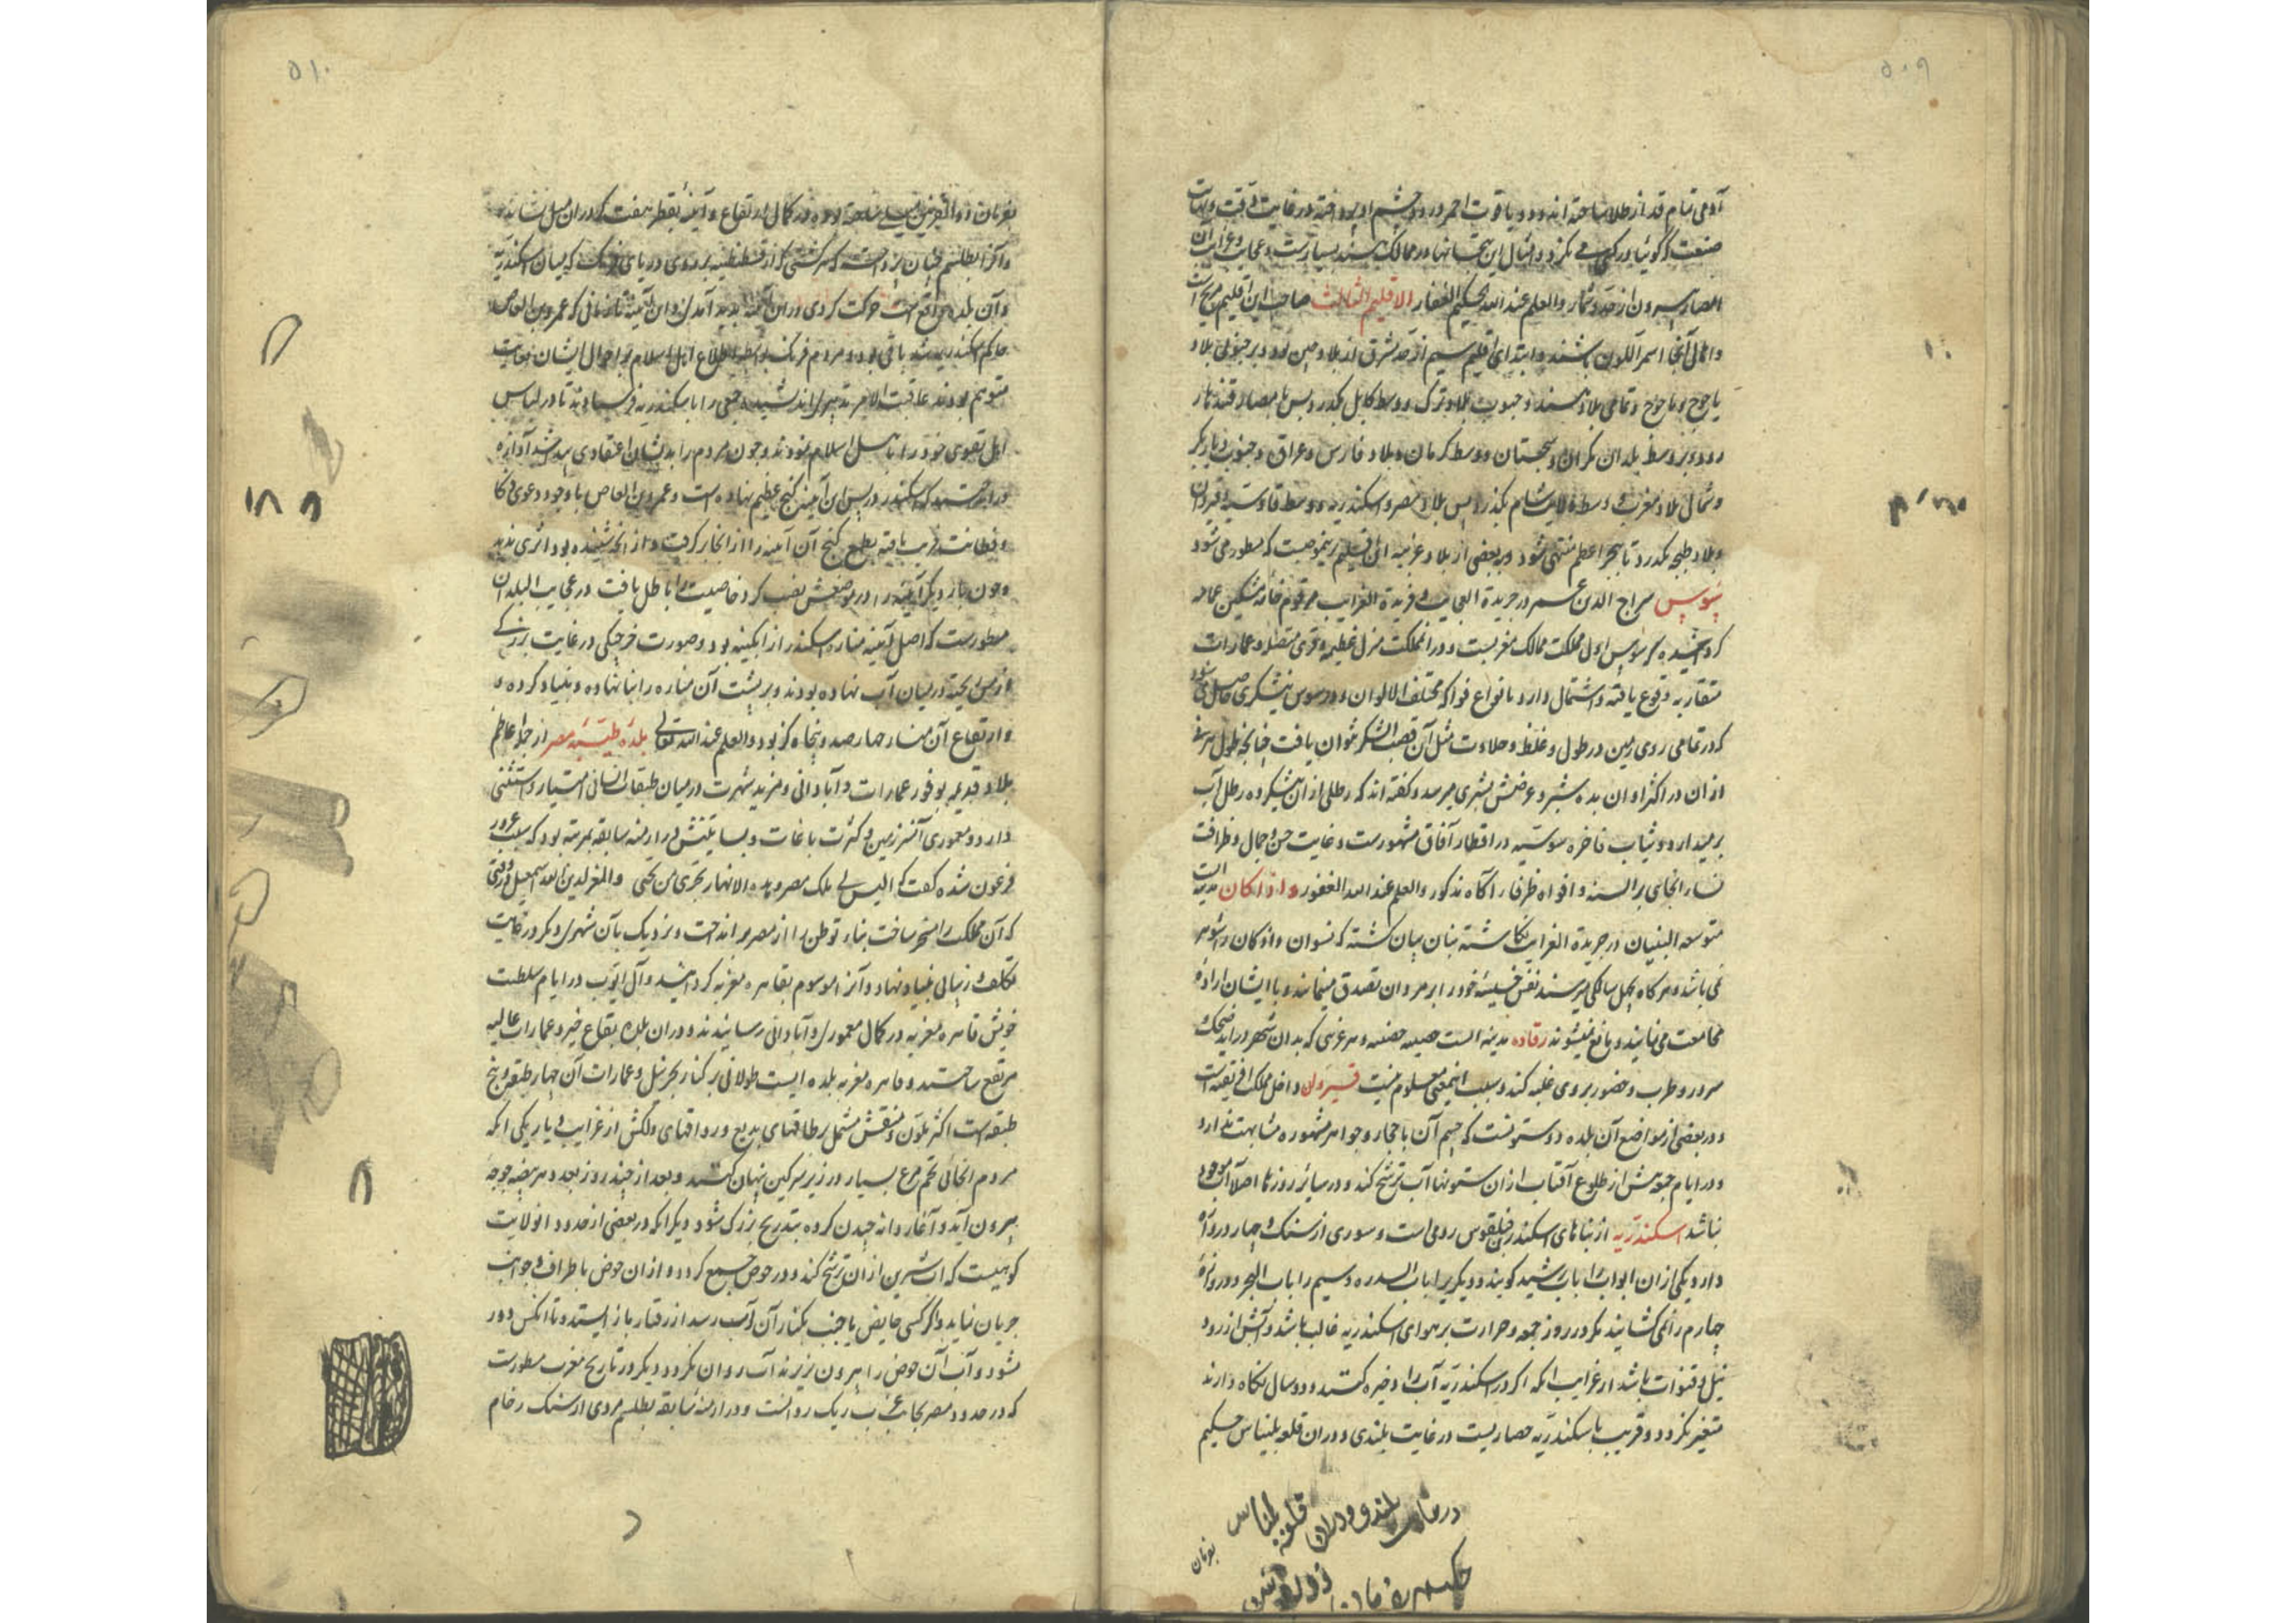 ۵۰۹
آدمی تمام قد از طلا ساخته اند و دو یاقوت احمر در دو چشم او پرداخته در غایت دقت و نهایت
صنعت که گوئیا در کسی می نکرد و امثال این بتخانها در ممالک هند بسیارست و عجایب و غرایب آن
امصار بیرون از حد و شمار والعلم عند الله الحکیم الغفار الاقلیم الثالث صاحب این اقلیم مریخ است
و اهالی آنجا اسمر اللون باشند و ابتدای اقلیم سیم از حد شرق از بلاد چین بود و بر جنوبی بلاد
یاجوج و ماجوج و تمامی بلاد هند و جنوب بلاد ترک و وسط کابل بگذرد پس با مصار قندهار
رود و بر وسط بلدان مکران و سجستان و وسط کرمان و بلاد فارس و عراق و جنوب دیار بکر
و شمال بلاد مغرب و وسط ولایت شام بگذرد پس بلاد مصر و اسکندریه و وسط قادسیه و قیروان
و بلاد طنجه بگذرد تا ببحر اعظم منتهی شود و بعضی از بلاد غربیه این اقلیم برینموجبست که مسطور می شود
سوس سراج الدین عمر در جریدة العجایب و فریدة الغرایب مرقوم خامه مشکین عمامه
کردانیده که سوس اول مملکت ممالک مغربست و در آن مملکت منزل عظیمه و قری متصل و عمارات
متقاربه وقوع یافته و اشتمال دارد بانواع فواکه مختلف الالوان و در سوس نیشکری حاصل می شود
که در تمامی روی زمین در طول و غلظ و حلاوت مثل آن قصب السکر نتوان یافت چنانچه طول هر نی
از ان در اکثر اوان بده شبر و عرضش بشبری میرسد و گفته اند که رطلی از ان نیشکر ده رطل آب
برمیدارد و ثیاب فاخره سوسیه در اقطار آفاق مشهورست و غایت حسن و جمال و ظرافت
نساء انجای بر السنه و افواه ظرفاء آگاه مذکور والعلم عند الله الغفور و از اکان مدینه ایست
متوسعه البنیان در جریدة الغرایب نکاشته بنان بیان گشته که نسوان و از کان را شوهر
نمی باشد و هر کاه بچهل سالگی میرسند نفس خسیسه خود را بر مردان تصدق مینمایند و با ایشان اراده
مجامعت می نمایند و مانع نمیشوند رقاده مدینه ایست حصینه و هر غریبی که بدان شهر در آید ضحک و
سرور و طرب و حضور بر وی غلبه کند و سبب اینمعنی معلوم نیست قیروان داخل مملکت افریقیه است
و در بعضی از مواضع آن بلده دو ستونست که جسم آن باحجار و جواهر مشهوره مشابهت ندارد
و در ایام جمعه پیش از طلوع آفتاب از ان ستونها آب ترشح کند و در سایر روزها اصلا آن موجود
نباشد اسکندریه از بناهای اسکندر فیلقوس رومی است و سوری از سنگ و چهار دروازه
دارد یکی از ان ابواب را باب رشید کویند و دیگریرا باب السدره و سیم را باب البحر و دروازه
چهارم را نمی گشایند مکر در روز جمعه و حرارت بر هوای اسکندریه غالب باشد و آبش از رود
نیل و قنوات باشد از غرایب انکه اکر در اسکندریه آب را ذخیره کنند و دو سال نکاه دارند
متغیر نکردد و قریب باسکندریه حصاریست در غایت بلندی و در ان قلعه بلیناس حکیم
در غایت بلندی و در ان قلعه بلیناس
حکیم بفرمان ذوالقرنین
بفرمان
۵۱۰
بفرمان ذوالقرنین میلی ساخته بوده در کمال ارتفاع و آینه بقطر هفت کز در ان میل نشانده
و آنرا بطلسم چنان پرداخته که هر کشتی که از قسطنطنیه بر روی دریای فرنک که میان اسکندریه
و آن بلده واقع است حرکت کردی در ان آینه پدید آمدی و ان آینه تا زمانی که عمرو بن العاص
حاکم اسکندریه شد باقی بود و مردم فرنک بواسطه اطلاع اهل اسلام بر احوال ایشان بغایت
متوهم بودند عاقبت الامر تدبیری اندیشیده جمعی را باسکندریه فرستادند تا در لباس
اهل تقوی خود را باهل اسلام نمودند و چون مردم را بدیشان اعتقادی پید شد آوازه
در انداختند که اسکندر در پس این آینه گنج عظیم نهاده است و عمرو بن العاص با وجود دعوی ذکا
و فطانت فریب یافته بطمع گنج آن آینه را از انجا برکرفت و از انچه شنیده بود اثری ندید
و چون باز دیگر آینه را در موضعش نصب کرد خاصیت را باطل یافت در عجایب البلدان
مسطورست که اصل آینه مناره اسکندر از ابکینه بود و صورت خرچنگی در غایت بزرکی
از مس ریخته در میان آب نهاده بودند و بر پشت آن مناره را بنا نهاده و بنیاد کرده و
و ارتفاع آن منار چهار صد و پنجاه کز بود والعلم عند الله تعالی بلده طیبه مصر از جمله اعاظم
بلاد قدیمه بوفور عمارات و آبادانی و مزید شهرت در میان طبقات انسانی امتیاز و استثنی
دارد و معموری آنسرزمین و کثرت باغات و بساتینش در ازمنه سابقه بمرتبه بود که سبب غرور
فرعون شده گفت که الیس لی ملک مصر و هذه الانهار تجری من تحتی والمعز لدین الله اسمعیلی وقتی
که آن مملکت را مسخر ساخت بناء توطن را از مصر بر انداخت و نزدیک بآن شهری دیگر در غایت
تکلف و زیبائی بنیاد نهاد و آنرا موسوم بقاهره معزیه کردانید و آل ایوب در ایام سلطنت
خویش قاهره معزیه در کمال معموری و آبادانی رسانیدند و در ان بلده بقاع خیر و عمارات عالیه
مرتفع ساختند و قاهره معزیه بلده ایست طولانی بر کنار بحر نیل و عمارات آن چهار طبقه و پنج
طبقه است اکثر ملون و منقش مشتمل بر طاقهای بدیع و رواقهای دلکش از غرایب دیار یکی انکه
مردم انجائی تخم مرغ بسیار در زیر سرکین پنهان کنند و بعد از چند روز بعدد هر بیضه جوجه
بیرون آید و آغاز دانه چیدن کرده بتدریج بزرک شود دیگر انکه در بعضی از حدود انولایت
کوهیست که آب شیرین از ان ترشح کند و در حوض جمع کردد و از ان حوض باطراف و جوانب
جریان نماید و اگر کسی حایض یا جنب بکنار آن آب رسد از رفتار باز ایستد و تا انکس دور
نشود و آب آن حوض را بیرون نریزند آب روان نکردد و دیگر در تاریخ مغرب مسطورست
که در حدود مصر بجانب غرب ریک روانست و در ازمنه سابقه بطلسم مردی از سنگ رخام